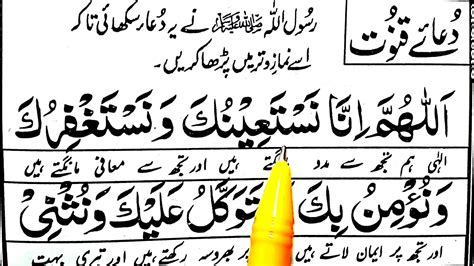 دعائے قنوت
رسول اللہ ﷺ نے یہ دعا سکھائی تاکہ
اسے نمازِ وتر میں پڑھا کریں۔
اَللّٰهُمَّ اِنَّا نَسْتَعِيْنُكَ وَنَسْتَغْفِرُكَ
الٰہی ہم تجھ سے مدد مانگتے ہیں اور تجھ سے معافی مانگتے ہیں
وَنُؤْمِنُ بِكَ وَنَتَوَكَّلُ عَلَيْكَ وَنُثْنِیْ
اور تجھ پر ایمان لاتے ہیں پر بھروسہ رکھتے ہیں اور تیری بہت